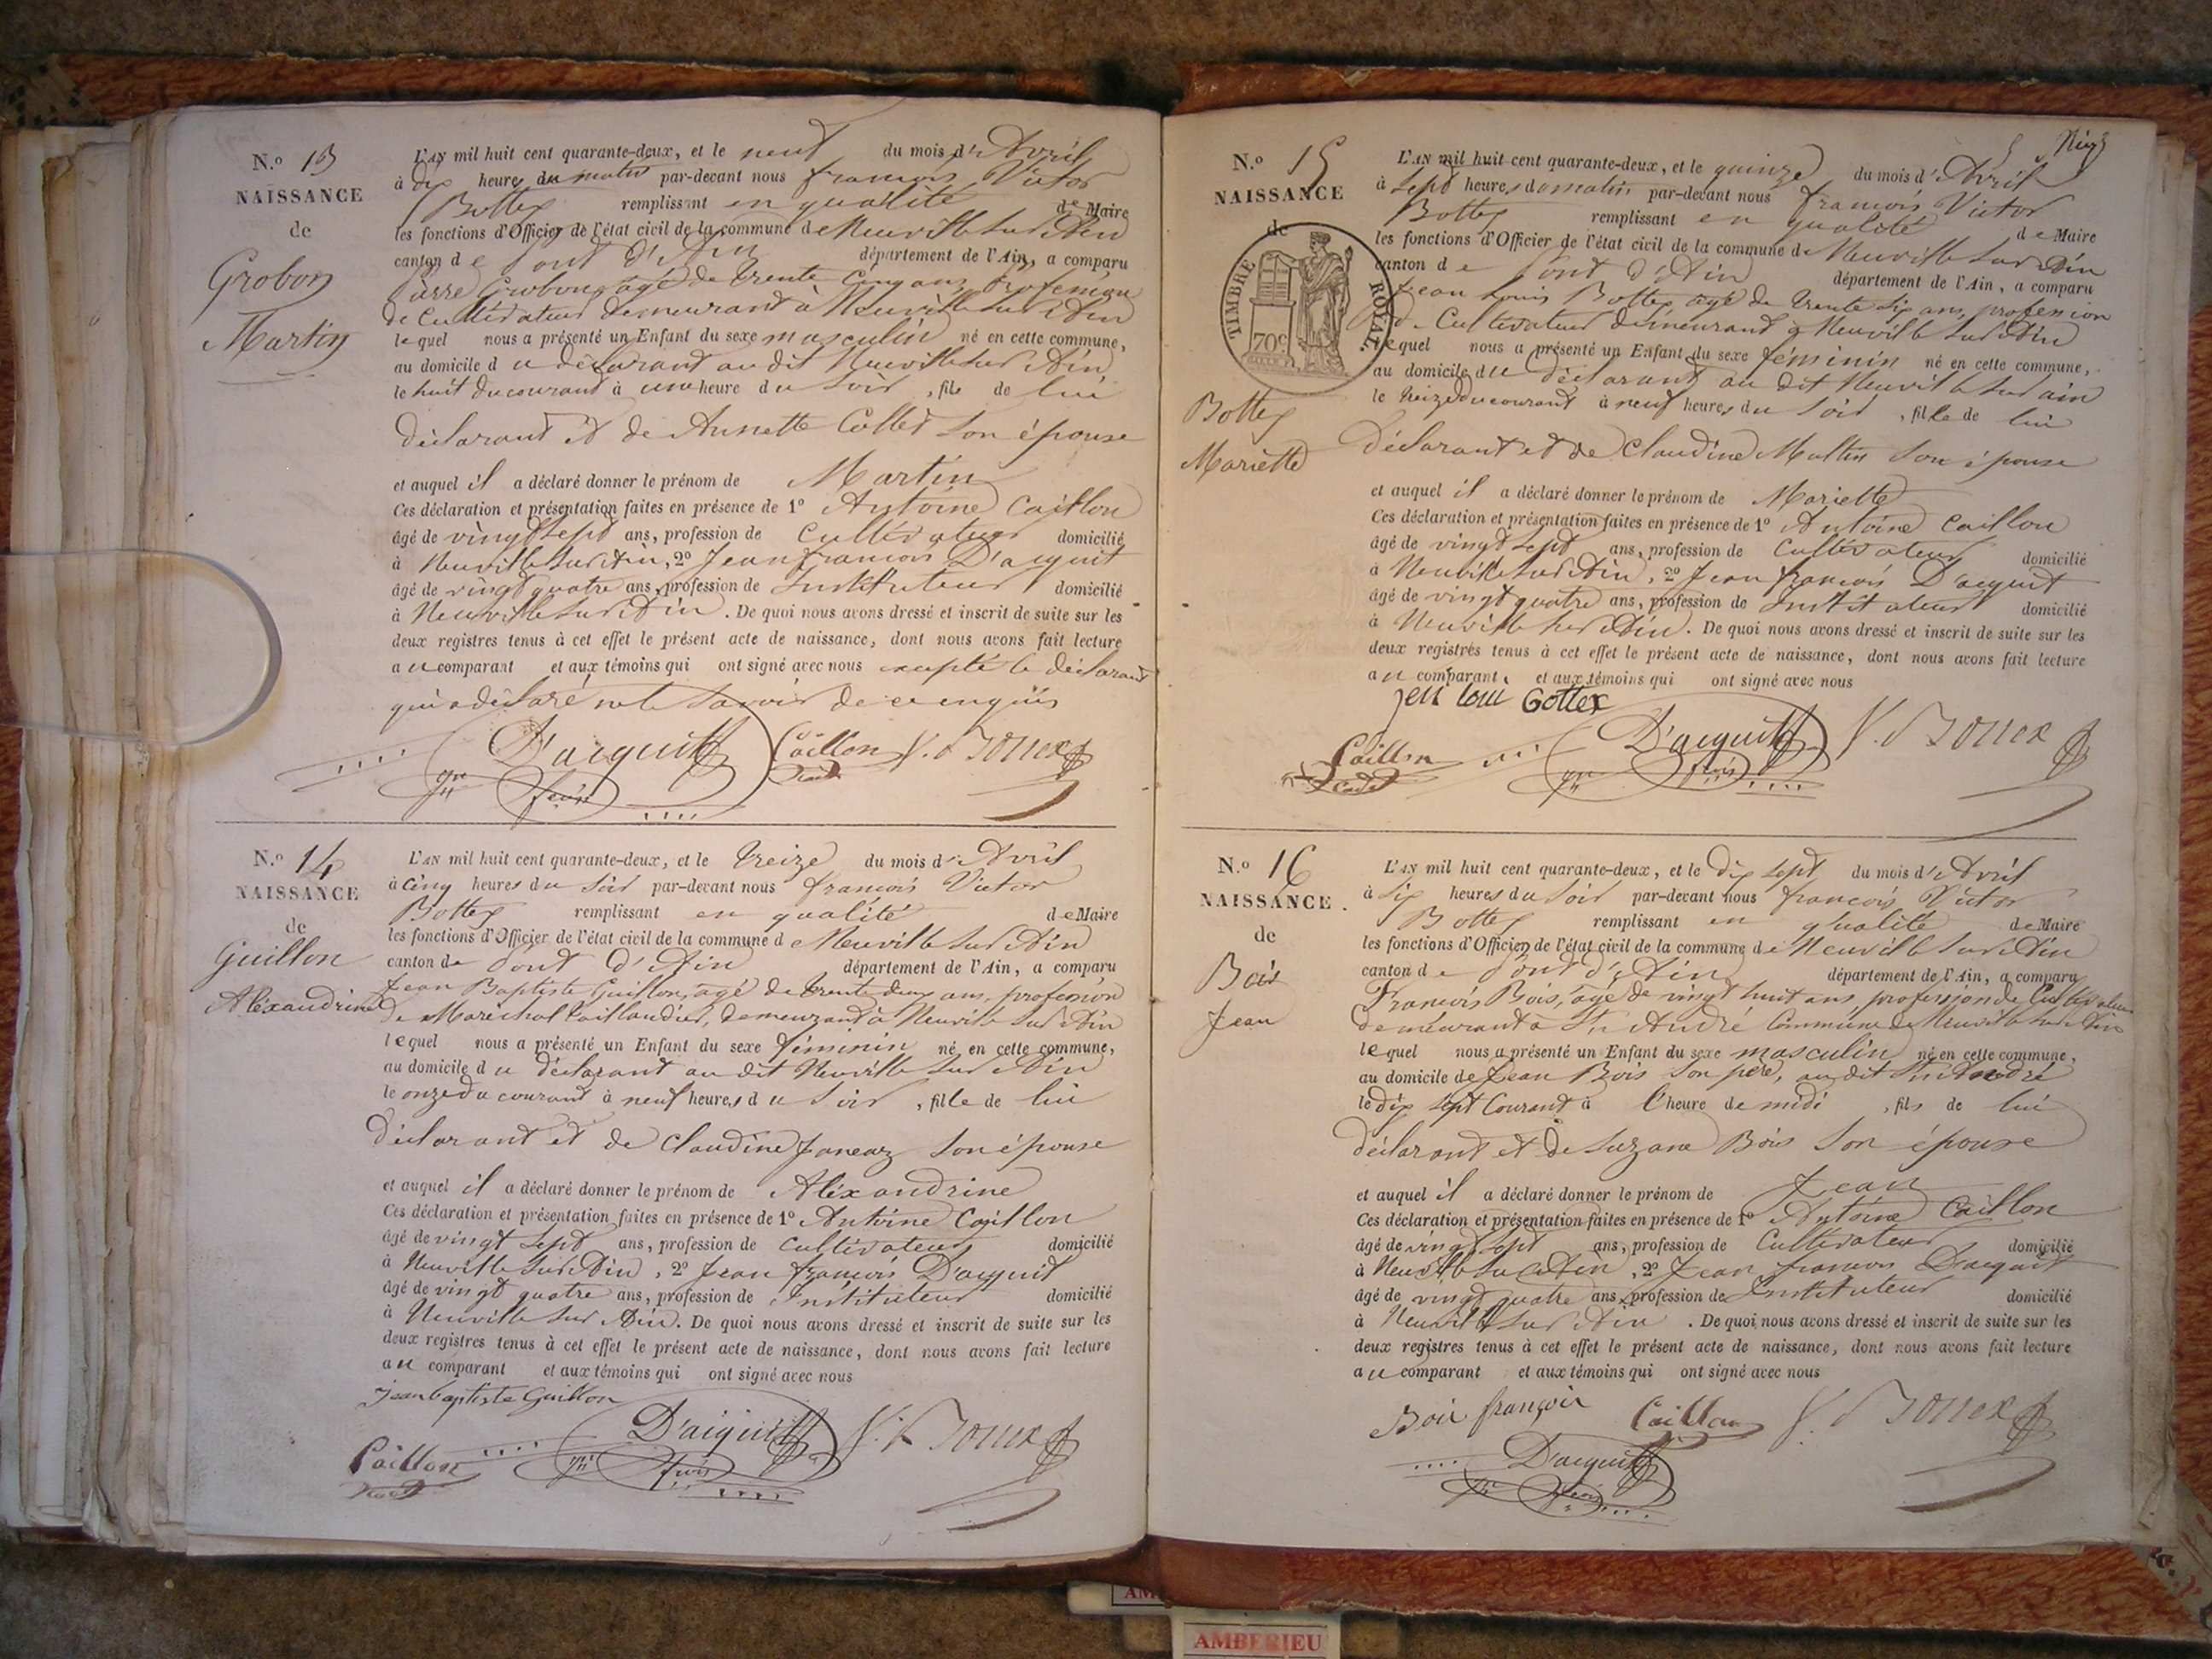 N.º 13
NAISSANCE
de
Grobon
Martin
L'AN mil huit cent quarante-deux, et le neuf du mois d'Avril
à dix heures du matin par-devant nous françois Victor
Bottex remplissant en qualité de Maire
les fonctions d'Officier de l'état civil de la commune de Neuville sur Ain
canton de Pont d'Ain département de l'Ain, a comparu
pierre Grobon, agé de trente cinq ans, profession
de Cultivateur demeurant à Neuville sur Ain
lequel nous a présenté un Enfant du sexe masculin né en cette commune,
au domicile du déclarant au dit Neuville sur Ain
le huit du courant à une heure du soir, fils de lui
déclarant et de Annette Collet son épouse
et auquel il a déclaré donner le prénom de Martin
Ces déclaration et présentation faites en présence de 1º Antoine Caillon
âgé de vingt sept ans, profession de Cultivateur domicilié
à Neuville sur Ain, 2º Jean françois D'acquit
âgé de vingt quatre ans, profession de Instituteur domicilié
à Neuville sur Ain. De quoi nous avons dressé et inscrit de suite sur les
deux registres tenus à cet effet le présent acte de naissance, dont nous avons fait lecture
au comparant et aux témoins qui ont signé avec nous excepté le déclarant
qui a déclaré ne le savoir de ce enquis
D'acquit Caillon V. Bottex
N.º 14
NAISSANCE
de
Guillon
Alexandrine
L'AN mil huit cent quarante-deux, et le treize du mois d'Avril
à cinq heures du soir par-devant nous françois Victor
Bottex remplissant en qualité de Maire
les fonctions d'Officier de l'état civil de la commune de Neuville sur Ain
canton de Pont d'Ain département de l'Ain, a comparu
Jean Baptiste Guillon, agé de trente deux ans, profession
de Maréchal Taillandier, demeurant à Neuville sur Ain
lequel nous a présenté un Enfant du sexe féminin né en cette commune,
au domicile du déclarant au dit Neuville sur Ain
le onze du courant à neuf heures du soir, fille de lui
déclarant et de Claudine son épouse
et auquel il a déclaré donner le prénom de Aléxandrine
Ces déclaration et présentation faites en présence de 1º Antoine Caillon
âgé de vingt sept ans, profession de Cultivateur domicilié
à Neuville sur Ain, 2º Jean françois D'acquit
âgé de vingt quatre ans, profession de Instituteur domicilié
à Neuville sur Ain. De quoi nous avons dressé et inscrit de suite sur les
deux registres tenus à cet effet le présent acte de naissance, dont nous avons fait lecture
au comparant et aux témoins qui ont signé avec nous
jean baptiste Guillon
Caillon D'acquit V. Bottex
N.º 15
NAISSANCE
de
TIMBRE ROYAL.
70c
Bottex
Mariette
L'AN mil huit cent quarante-deux, et le quinze du mois d'Avril
à sept heures du matin par-devant nous françois Victor
Bottex remplissant en qualité de Maire
les fonctions d'Officier de l'état civil de la commune de Neuville sur Ain
canton de Pont d'Ain département de l'Ain, a comparu
Jean Louis Bottex agé de trente six ans, profession
de Cultivateur demeurant à Neuville sur Ain
lequel nous a présenté un Enfant du sexe féminin né en cette commune,
au domicile du déclarant au dit Neuville sur ain
le treize du courant à neuf heures du soir, fille de lui
déclarant et de Claudine son épouse
et auquel il a déclaré donner le prénom de Mariette
Ces déclaration et présentation faites en présence de 1º Antoine Caillon
âgé de vingt sept ans, profession de Cultivateur domicilié
à Neuville sur Ain, 2º Jean françois D'acquit
âgé de vingt quatre ans, profession de Instituteur domicilié
à Neuville sur Ain. De quoi nous avons dressé et inscrit de suite sur les
deux registres tenus à cet effet le présent acte de naissance, dont nous avons fait lecture
au comparant et aux témoins qui ont signé avec nous
jen loui Bottex
Caillon D'acquit V. Bottex
N.º 16
NAISSANCE
de
Bois
Jean
L'AN mil huit cent quarante-deux, et le dix sept du mois d'Avril
à six heures du soir par-devant nous françois Victor
Bottex remplissant en qualité de Maire
les fonctions d'Officier de l'état civil de la commune de Neuville sur Ain
canton de Pont d'Ain département de l'Ain, a comparu
François Bois, agé de vingt huit ans profession de Cultivateur
demeurant à St. André Commune de Neuville sur Ain
lequel nous a présenté un Enfant du sexe masculin né en cette commune,
au domicile de Jean Bois son père, au dit St. André
le dix sept Courant à l'heure de midi, fils de lui
déclarant et de Suzane Bois son épouse
et auquel il a déclaré donner le prénom de Jean
Ces déclaration et présentation faites en présence de 1º Antoine Caillon
âgé de vingt sept ans, profession de Cultivateur domicilié
à Neuville sur Ain, 2º Jean françois Dacquit
âgé de vingt quatre ans, profession de Instituteur domicilié
à Neuville sur Ain. De quoi nous avons dressé et inscrit de suite sur les
deux registres tenus à cet effet le présent acte de naissance, dont nous avons fait lecture
au comparant et aux témoins qui ont signé avec nous
Bois françois Caillon V. Bottex
D'acquit
AMBERIEU